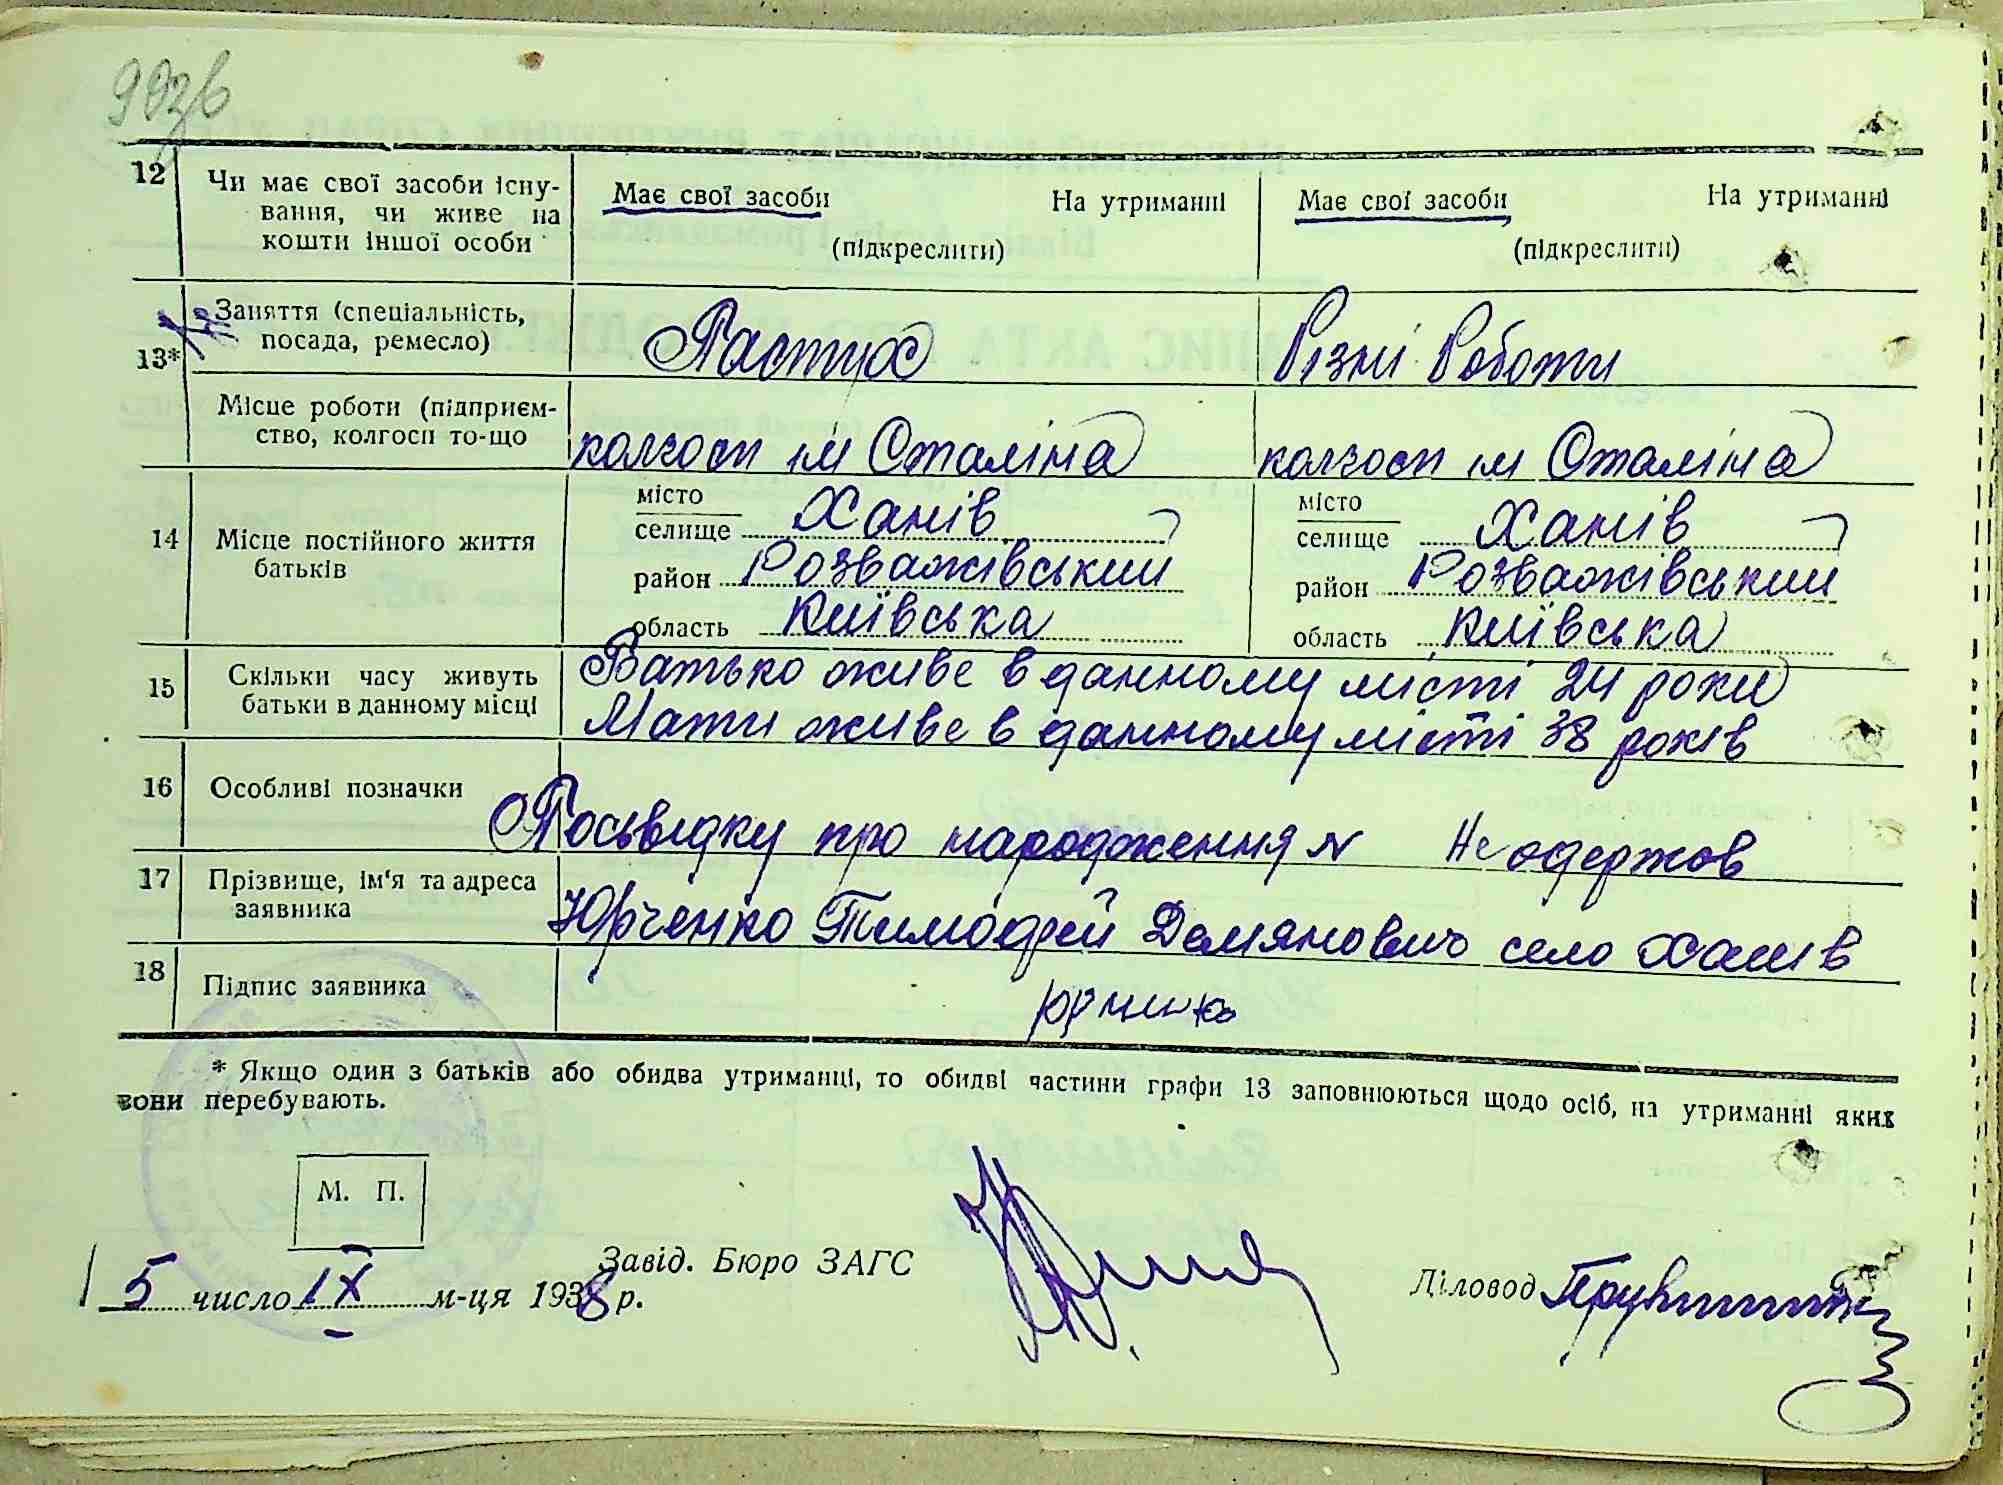 12 Чи має свої засоби існу-
вання, чи живе на
кошти іншої особи
Має свої засоби На утриманні
(підкреслити)
Має свої засоби На утриманні
(підкреслити)
13* Заняття (спеціальність,
посада, ремесло)
Пастух
Різні Роботи
Місце роботи (підприєм-
ство, колгосп то-що
колгосп ім Сталіна
колгосп ім Сталіна
14 Місце постійного життя
батьків
місто
селище Ханів
район Розважівський
область Київська
місто
селище Ханів
район Розважівський
область Київська
15 Скільки часу живуть
батьки в данному місці
Батько живе в данному місті 24 роки
Мати живе в данному місті 38 років
16 Особливі позначки
Посьвідку про народження № Не одержов
17 Прізвище, ім'я та адреса
заявника
Юрченко Тимофей Демянович село Ханів
18 Підпис заявника
* Якщо один з батьків або обидва утриманці, то обидві частини графи 13 заповнюються щодо осіб, на утриманні яких
вони перебувають.
М. П.
5 число IX м-ця 1938 р.
Завід. Бюро ЗАГС
Діловод